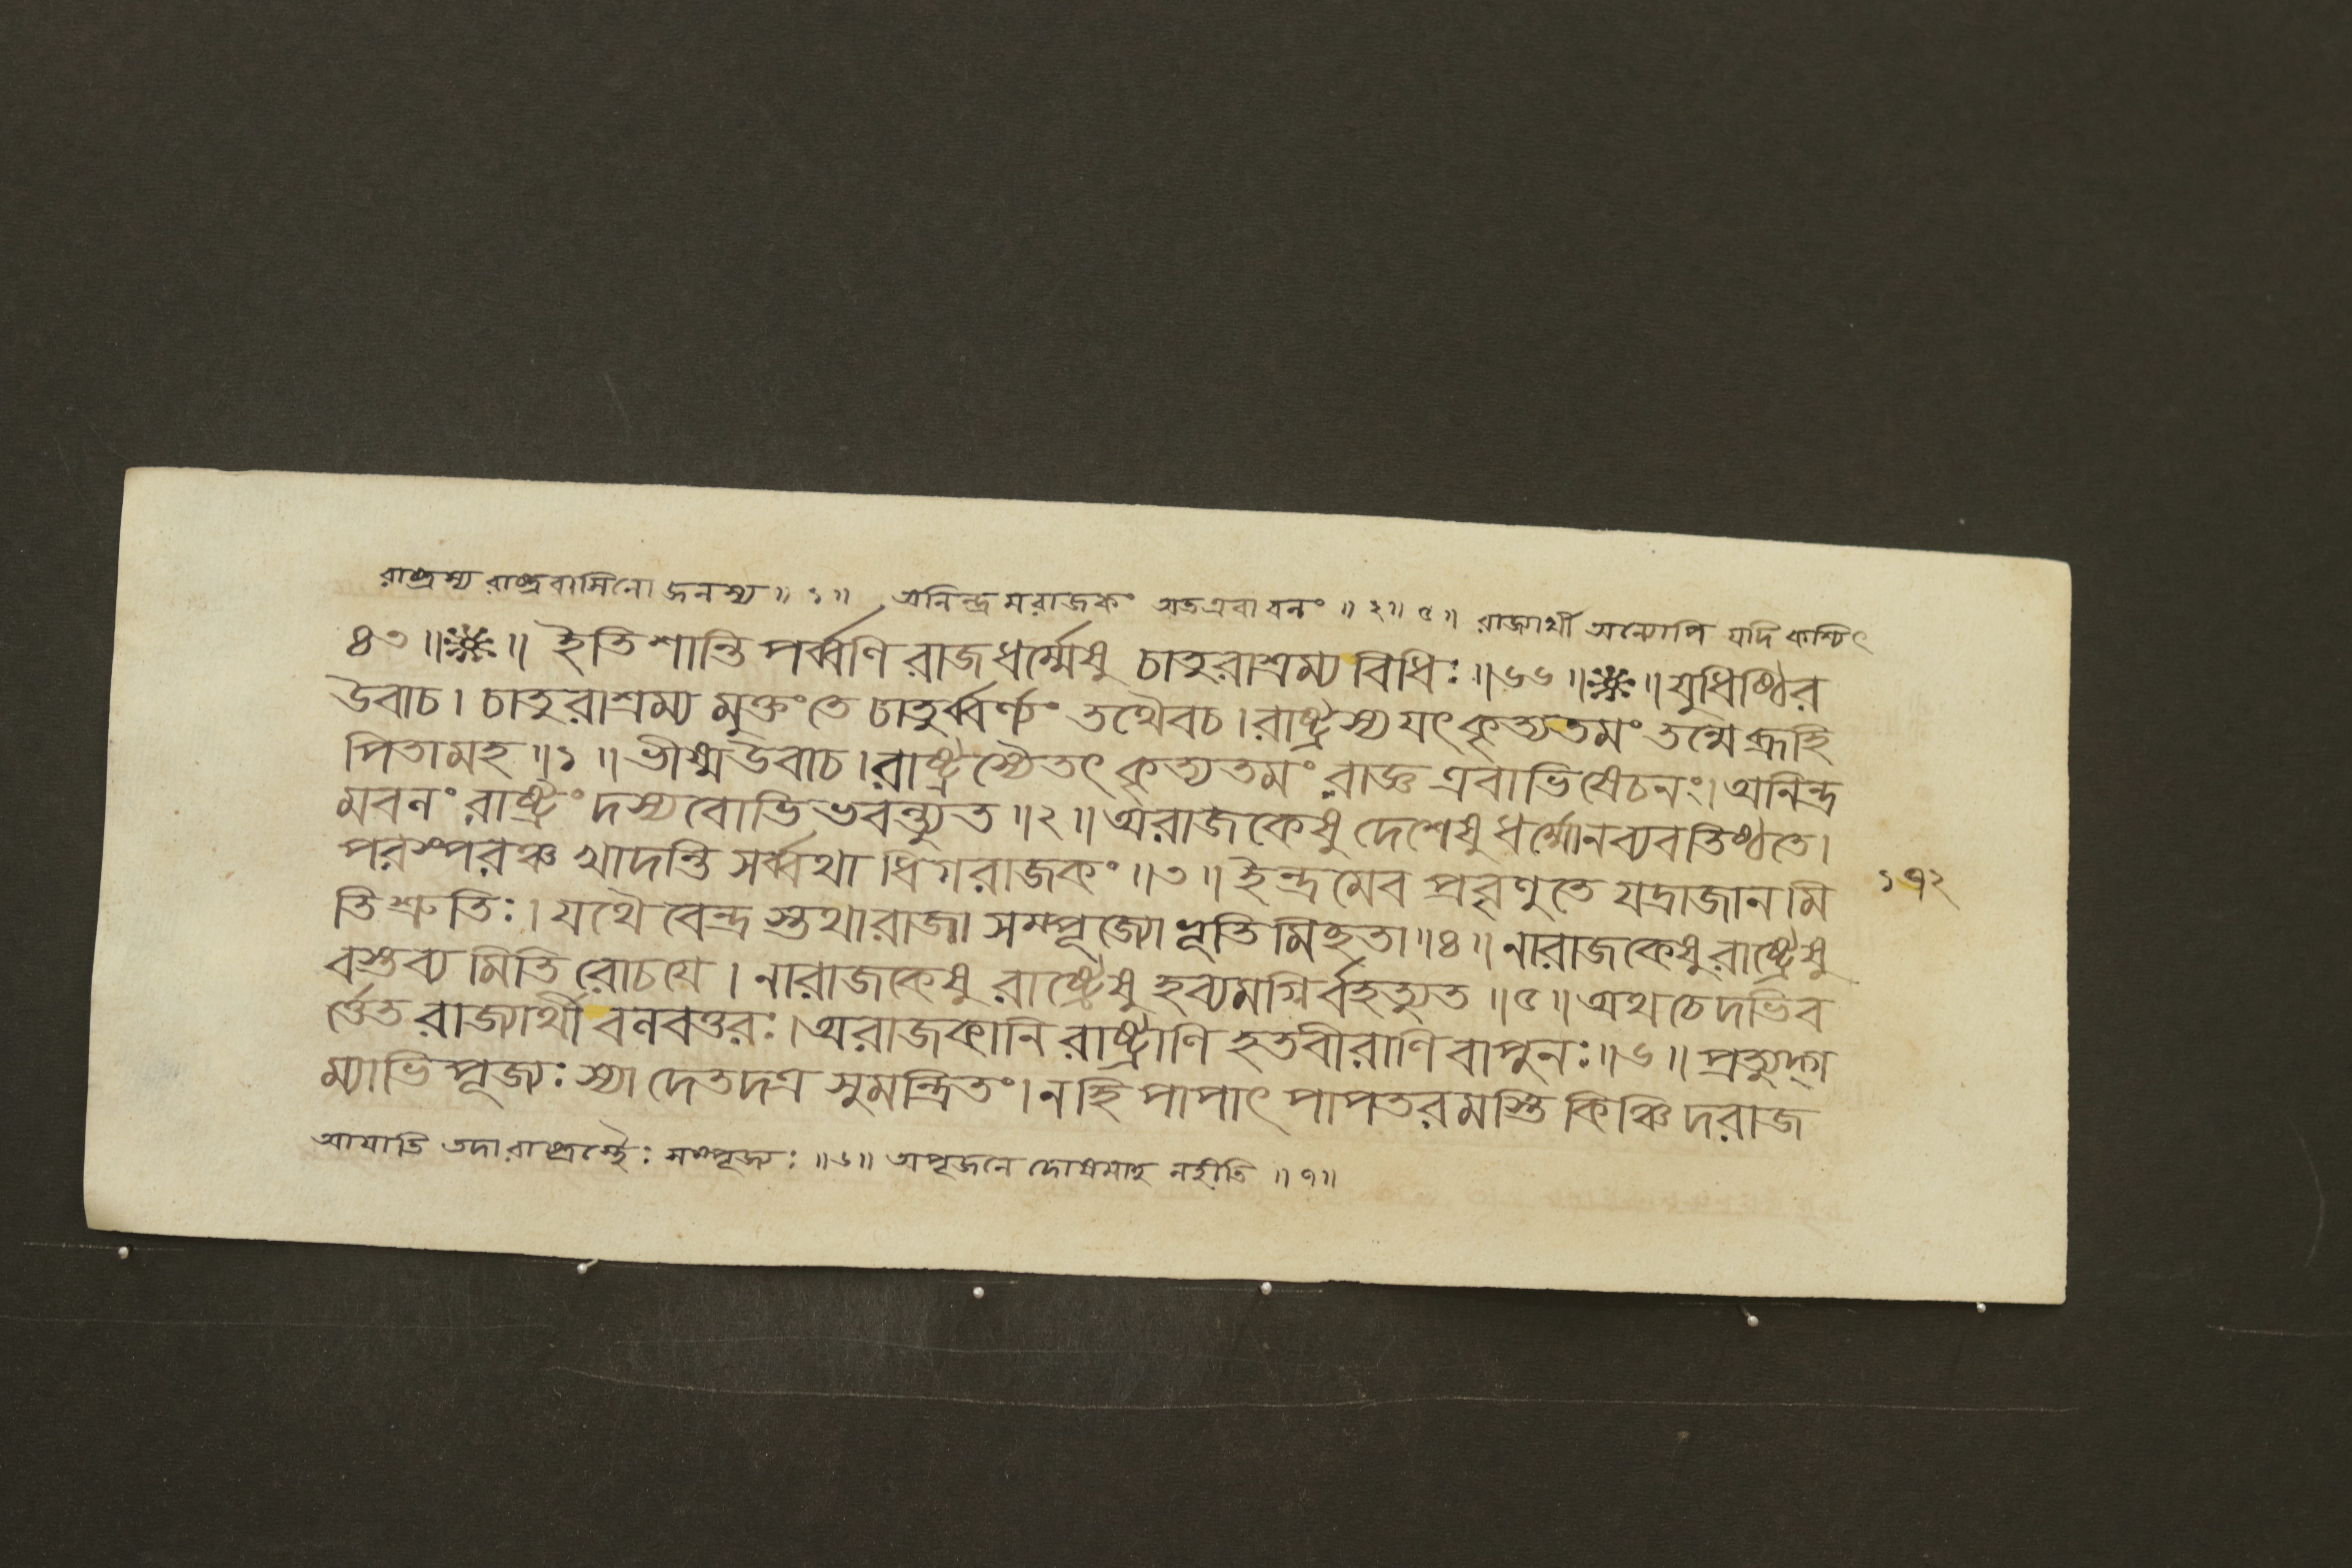 রাষ্ট্রস্য রাষ্ট্রবাসিনো জনস্য ॥ ১ ॥ অনিন্দ্রমরাজকং অতএবাবনং ॥ ২ ॥ ৫ ॥ রাজ্যার্থী অন্যোপি যদি কশ্চিৎ
৪৩ ॥ ※ ॥ ইতি শান্তিপর্ব্বণি রাজধর্ম্মেষু চাতুরাশ্রম্যবিধিঃ ॥ ৬৬ ॥ ※ ॥ যুধিষ্ঠির
উবাচ । চাতুরাশ্রম্যমুক্তং তে চাতুর্ব্বর্ণ্যং তথৈবচ । রাষ্ট্রস্য যৎ কৃত্যতমং তন্মে ব্রূহি
পিতামহ ॥ ১ ॥ ভীষ্মউবাচ । রাষ্ট্রস্যৈতৎ কৃত্যতমং রাজ্ঞ এবাভিষেচনং । অনিন্দ্র
মবনং রাষ্ট্রং দস্যবোভিভবন্ত্যুত ॥ ২ ॥ অরাজকেষু দেশেষু ধর্ম্মোনব্যবতিষ্ঠতে ।
পরস্পরঞ্চ খাদন্তি সর্ব্বথা ধিগরাজকং ॥ ৩ ॥ ইন্দ্রমেব প্রবৃণুতে যদ্রাজানমি ১৭২
তি শ্রুতিঃ । যথৈবেন্দ্রস্তথারাজা সম্পূজ্যো ভূতিমিছতা ॥ ৪ ॥ নারাজকেষু রাষ্ট্রেষু
বস্তব্যমিতি রোচয়ে । নারাজকেষু রাষ্ট্রেষু হব্যমগ্নির্বহত্যুত ॥ ৫ ॥ অথ চেদভিব
র্ত্তেত রাজ্যার্থী বনবত্তরঃ । অরাজকানি রাষ্ট্রাণি হতবীরাণি বাপুনঃ ॥ ৬ ॥ প্রত্যুদ্গ
ম্যাভিপূজ্যঃ স্যাদেতদত্র সুমন্ত্রিতং । নহি পাপাৎ পাপতরমস্তি কিঞ্চিদরাজ
আযাতি তদা রাষ্ট্রস্থৈঃ সম্পূজ্যঃ ॥ ৬ ॥ অপূজনে দোষমাহ নহীতি ॥ ৭ ॥